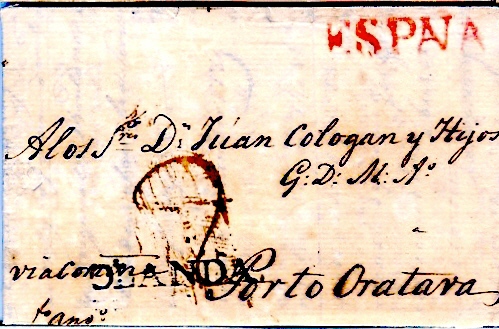 ESPNA
A los S.res D.n Juan Cologan y Hijos
G: D: M: A.s
via Coruña
Porto Oratava